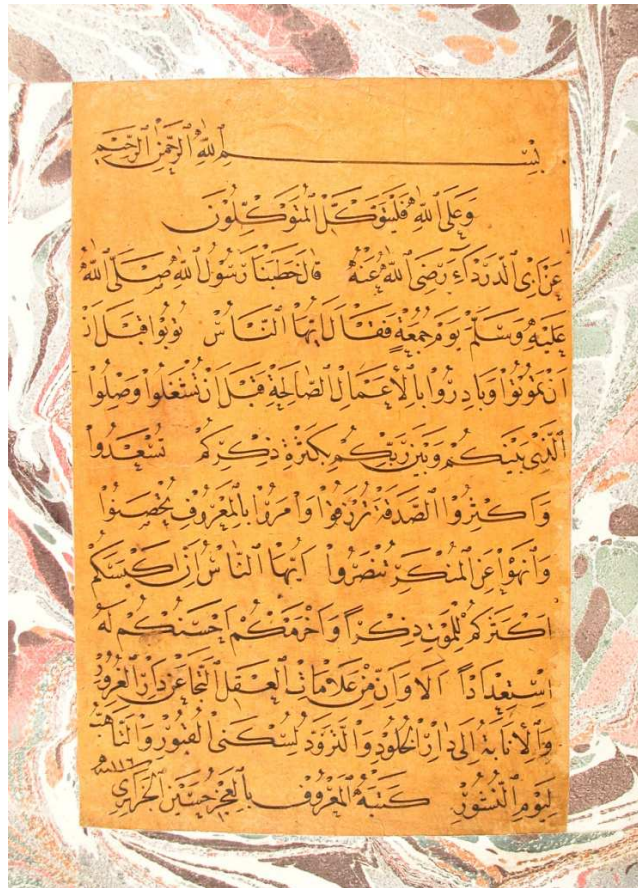 بِسْمِ اللّٰهِ الرَّحْمٰنِ الرَّحِيْمِ
وَعَلَى اللّٰهِ فَلْيَتَوَكَّلِ الْمُتَوَكِّلُونَ
عَنْ اَبِى الدَّرْدَاءِ رَضِىَ اللّٰهُ عَنْهُ قَالَ خَطَبَنَا رَسُولُ اللّٰهِ صَلَّى اللّٰهُ
عَلَيْهِ وَسَلَّمَ يَوْمَ جُمُعَةٍ فَقَالَ اَيُّهَا النَّاسُ تُوبُوا قَبْلَ اَنْ
اَنْ تَمُوتُوا وَبَادِرُوا بِالْاَعْمَالِ الصَّالِحَةِ قَبْلَ اَنْ تُشْغَلُوا وَصِلُوا
الَّذِى بَيْنَكُمْ وَبَيْنَ رَبِّكُمْ بِكَثْرَةِ ذِكْرِكُمْ تَسْعَدُوا
وَاَكْثِرُوا الصَّدَقَةَ تُرْزَقُوا وَاْمُرُوا بِالْمَعْرُوفِ تُخْصَبُوا
وَانْهَوْا عَنِ الْمُنْكَرِ تُنْصَرُوا اَيُّهَا النَّاسُ اِنَّ اَكْيَسَكُمْ
اَكْثَرُكُمْ لِلْمَوْتِ ذِكْرًا وَاَحْزَمَكُمْ اَحْسَنُكُمْ لَهُ
اسْتِعْدَادًا اَلَا وَاِنَّ مِنْ عَلَامَاتِ الْعَقْلِ التَّجَافِى عَنْ دَارِ الْغُرُورِ
وَالْاِنَابَةُ اِلَى دَارِ الْخُلُودِ وَالتَّزَوُّدُ لِسُكْنَى الْقُبُورِ وَالتَّاَهُّبُ
لِيَوْمِ النُّشُورِ كَتَبَهُ الْمَعْرُوفُ بِالْعَجْزِ حُسَيْنُ ١١١٦